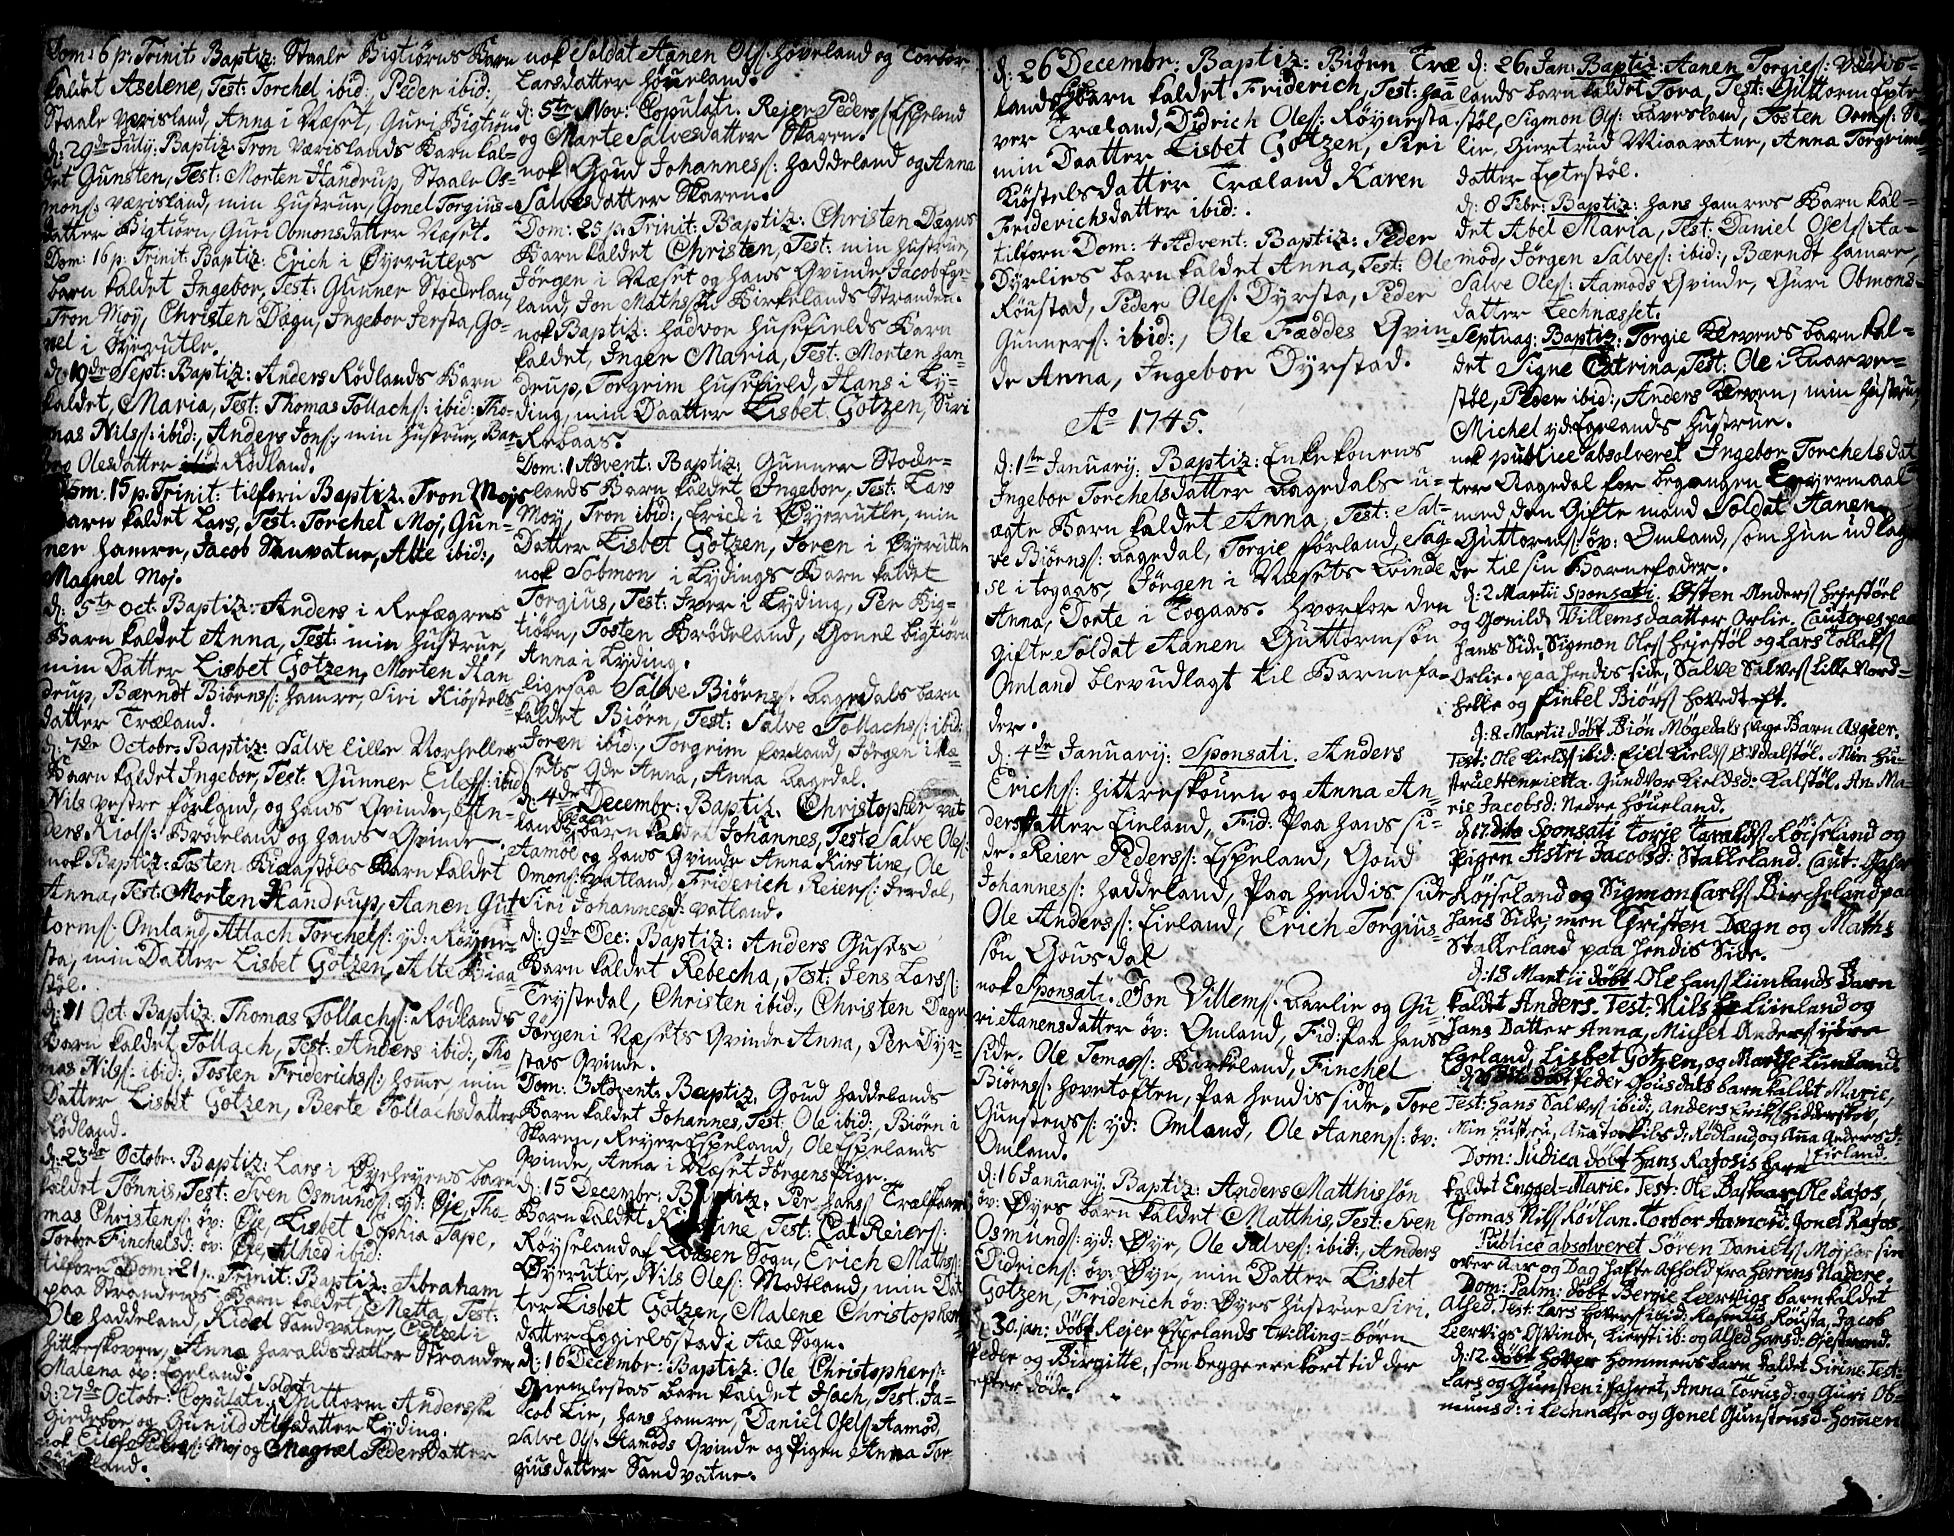 Dom: 6 p: Trinit: Baptiz: Staale Bigtiørns Barn
kaldet Aselene, Test: Torchel ibid:, Peder ibid:
Staale Værisland, Anna i Næset, Guri Bigtiørn
d: 29de July: Baptiz: Tron Værislands Barn kal-
det Gunsten, Test: Morten Handrup, Staale Os-
mons: Værisland, min Hustrue, Gonel Torgius-
datter Bigtiørn, Guri Obmonsdatter Næset.
Dom: 16 p: Trinit: Baptiz: Erich i Øyerutles
barn kaldet Ingebor, Test: Gunner Stoedelan,
Tron Moy, Christen Dægn, Ingebor Jersta, Go-
nel i Øyerutle.
d: 19de Sept: Baptiz: Anders Rødlands Barn
kaldet, Maria, Test: Thomas Tollachs: ibid: Tho-
mas Nilss: ibid:, Anders Jons:, min Hustrue, Bar-
bro Olesdatter Rødland.
Dom: 15 p: Trinit: tilforn Baptiz: Tron Mojs
Barn kaldet Lars, Test: Torchel Moj, Gun-
ner Hamre, Jacob Sanvatne, Alte ibid:,
Magnel Moj.
d: 5te Oct: Baptiz: Anders i Refægres
Barn kaldet Anna, Test: min Hustrue,
min Datter Lisbet Gotzen, Morten Han
drup, Bærndt Biørns: Hamre, Siri Kiøstels
datter Træland.
d: 7de Octobr: Baptiz: Salve lille Norhelles
Barn kaldet Ingebor, Test: Gunner Eiless: ibid
Nils vestre Førland og hans Qvinde, An-
ders Kiols: Brødeland og hans Qvinde.
nok Baptiz: Tosten Biaastøls Barn kaldet
Anna, Test: Morten Handrup, Aanen Gut-
torms: Omland, Atlach Torchels: yd: Røyne-
sta, min Datter Lisbet Gotzen, Alte Biaa
støl.
d: 11 Oct: Baptiz: Thomas Tollachs: Rødlands
Barn kaldet Tollach, Test: Anders ibid:, Tho
mas Nils: ibid:, Tosten Friderichs: home, min
Datter Lisbet Gotzen, Berte Tollachsdatter
Rødland.
d: 23de Octobr: Baptiz: Lars i Øyehøyens barn
kaldet Tønnis, Test: Sven Osmunds: yd: Øje, Tho-
mas Christens: øv: Øje, Lisbet Sophia Tape,
Torbor Finchelsd: øv: Øje, Alhed ibid:
tilforn Dom: 21 p: Trinit: Baptiz: Abraham
paa Strandens Barn kaldet, Metta, Test:
Ole Haddeland, Kidel Sandvatne, Eidsel i
Hitterskoven, Anna Haraldsdatter Stranden
Malena øv: Egeland.
d: 27de Octobr: Copulati Soldat Guttorm Anders:
Girdebøe og Gunild Alfsdatter Lyding.
nok Eilef Peders: Moj og Magnel Pedersdatter

nok Soldat Aanen Ols: Høveland og Torbor
Larsdatter Høveland.
d: 5te Nov: Copulati. Rejer Peders: Espeland
og Marte Salvesdatter Skaren.
nok Goud Johanness: Haddeland og Anna
Salvesdatter Skaren.
Dom: 25 p: Trinit: Baptiz: Christen Dægns
Barn kaldet Christen, Test: min Hustrue,
Jørgen i Næset og hans Qvinde, Jacob Ey-
land, Jon Mathis: Birkelands Stranden.
nok Baptiz: Hadvor Husefields Barn
kaldet, Inger Maria, Test: Morten Han-
drup, Torgrim Husefield, Hans i Ly-
ding, min Daatter Lisbet Gotzen, Siri
Rebaas.
Dom: 1 Advent: Baptiz: Gunner Stoede-
lands Barn kaldet Ingebor, Test: Lars
Moy, Tron ibid:, Erich i Øyerutle, min
Datter Lisbet Gotzen, Joren i Øyerutle
nok Sobmon i Lydings Barn kaldet
Torgius, Test: Iver i Lyding, Per Big-
tiørn, Tosten Brødeland, Gonel bigtiørn
Anna i Lyding.
ligesaa Salve Biørns: Aagedals barn
kaldet Biørn, Test: Salve Tollachs: ibid:
Joren ibid:, Torgrim Forland, Jørgen i Næ
sets Qde Anna, Anna Aagedal.
d: 4de Decembr: Baptiz: Christopher Vat
lands barn kaldet Johannes, Test: Salve Ols:
Aamoe og hans Qvinde Anna Kirstine, Ole
Omons: Vatland, Friderich Reiers: Jerdal,
Siri Johannesd: Vatland.
d: 9de Dec: Baptiz: Anders Guses
Barn kaldet Rebecha, Test: Jens Larss:
Trystedal, Christen ibid:, Christen Dægn
Jørgen i Næsets Qvinde Anna, Per Dyr-
stas Qvinde.
Dom: 3 Advent: Baptiz: Goud Haddelands
Barn kaldet Johannes, Test: Ole ibid:, Biørn i
Skaren, Reyer Espeland, Ole Espelands
Qvinde, Anna i Næset Jørgens Pige.
d: 15 Decembr: Per Hans: Trælfaars
Barn kaldet Test: Cat Reiers:
Røyseland af Sogn, Erich Maths:
Øyerutle, Nils Oles: Modland, min Dat
ter Lisbet Gotzen, Malene Christophers
datter Eggielsstad i Aae Sogn.
d: 16 Decembr: Baptiz: Ole Christophers:
Giemlestas barn kaldet Isach, Test: Ja-
cob Lie, Hans Hamre, Daniel Osels: Aamod,
Salve Ols: Aamods Qvinde og Pigen Anna Tor
giusdatter Sandvatne.

d: 26 Decembr: Baptiz: Biørn Træ
lands barn kaldet Friderich, Test: Haa
ver Træland, Didrich Oles: Røynesta
min Daatter Lisbet Gotzen, Siri
Kiøstelsdatter Træland Karen
Friderichsdatter ibid:.
tilforn Dom: 4 Advent: Baptiz: Peder
Dyrlies barn kaldet Anna, Test: Ole
Roustad, Peder Oles: Dyrsta, Peder
Gunners: ibid:, Ole Fæddes Qvin-
de Anna, Ingebor Dyrstad.
Ao 1745.
d: 1te January: Baptiz: Enkekonens
Ingebor Torchelsdatter Aagedals u-
ægte Barn kaldet Anna, Test: Sal-
ve Biørns: Aagedal, Torgie Førland, Aag-
se i Togaas, Jørgen i Næsets Qvinde
Anna, Dorte i Togaas. Hvorfor den
gifte Soldat Aanen Guttormsøn
Omland blev udlagt til Barnefa-
der.
d: 4de January: Sponsati. Anders
Erichs: Hittreskouen og Anna An-
ders datter Eieland, Fid: Paa hans si-
de. Reier Peders: Espeland, Goud
Johannes: Haddeland, Paa hendis side
Ole Anders: Eieland, Erich Torgius-
søn Gousdal
nok Sponsati. Jon Villems: Aarlie og Gu
ri Aanensdatter øv: Omland, Fid: Paa hans
side. Ole Tomas: Birkeland, Finchel
Biørns: Hovetoften, Paa hendis side, Tore
Gunstens: yd: Omland, Ole Aanens: øv:
Omland.
d: 16 January: Baptiz: Anders Matthisøn
øv: Øyes barn kaldet Matthis, Test: Sven
Osmunds: yd: Øye, Ole Salves: ibid:, Anders
Didrichs: øv: Øye, min Datter Lisbet
Gotzen, Friderich øv: Øyes Hustrue Siri.
d: 30 jan: døbt Rejer Espelands tvilling-børn
Peder og Birgitte, som begge ere kort tid der
efter døde.

d: 26 Jan: Baptiz: Aanen Torgies: Væris-
lands barn kaldet Tora, Test: Guttorm Epte-
støl, Sigmon Ols: Aaresland, Tosten Orms:
lie, Giertrud Miaavatne, Anna Torgrims
datter Eptestøl.
d: 8 Febr: Baptiz: Hans Hamres Barn kal-
det Abel Maria, Test: Daniel Osels: Aa-
mod, Jørgen Salves: ibid:, Bærndt Hamre,
Salve Oles: Aamods Qvinde, Guri Obmons-
datter Lechnæsset.
Septuag: Baptiz: Torgie Klevens barn kal-
det Signe Catrina, Test: Ole i Knarve-
støl, Peder ibid:, Anders Kleven, min Hustrue,
Michel yd: Egelands Hustrue.
nok publice absolveret Ingebor Torchelsdat
ter Aagedal for begangen Leyermaal
med den Gifte mand Soldat Aanen
Guttorms: øv: Omland, som hun udlag-
de til sin Barnefader.
d: 2 Martii Sponsati. Østen Anders Hejestøel
og Gonild Villemsdaatter Orlie. Cautores paa
Hans Side, Sigmon Oles Hejestøl og Lars Tollaks
Orlie. paa hendis side, Salve Salves Lille Nord-
helle og Finkel Biørs Hovedt-eft.
d: 8 Martii døbt Biøn Møgedals uægte Barn Asgier.
Test: Ole Kields ibid: Eiel Kields Ordalstøl. Min Hu-
strue Henrietta. Gundvor Kieldsd: Kalstøl. An. Ma-
rie Jacobsd: Nedre Høueland.
d: 17 dito Sponsati Torje Taralds Røiseland og
Pigen Astri Jacobsd: Stalleland. Caut:
Røiseland og Sigmon Carls Birchelandpaa
Hans Side; men Christen Dægn og Mathis
Stalleland paa hendis Side.
d: 18 Martii døbt Ole Hans Liinlands Barn
kaldet Anders. Test: Nils Liinland og
Hans Datter Anna, Michel Anders ydre
Egeland, Lisbet Gotzen, og Martje Lunland.
døbt Peder Gousdals barn kaldt Marie,
Test: Hans Salves ibid: Anders Eriks Hidderskov,
Min Hustru, Ana Torkilsd: Rødland og Ana Andersd:
Eieland.
Dom: Judica døbt Hans Rafosis barn
kaldet Engel-Marie. Test: Ole Baskaar, Ole Rafos,
Thomas Nils Rødlan. Torbor Aamod, Jonel Rafos.
Publice absolveret Søren Daniels Moj for sin
over Aar og Dag hafte Afhold fra Herrens Nadere.
Dom: Palm: døbt Bergie Leervigs barn kaldet
Alfed. Test: Lars Hovers ibid: Rasmus Rousta, Jacob
Leervigs Qvinde, Kiersti ib: og Alfed Hansd: Ejestrand.
d: 12. døbt Hover Hommens barn kaldet Sirine. Test:
Lars og Gunsten i Fahret, Anna Torusd: og Guri Ob-
munsd: i Lechnæse og Gonel Gunstensd: Hommen